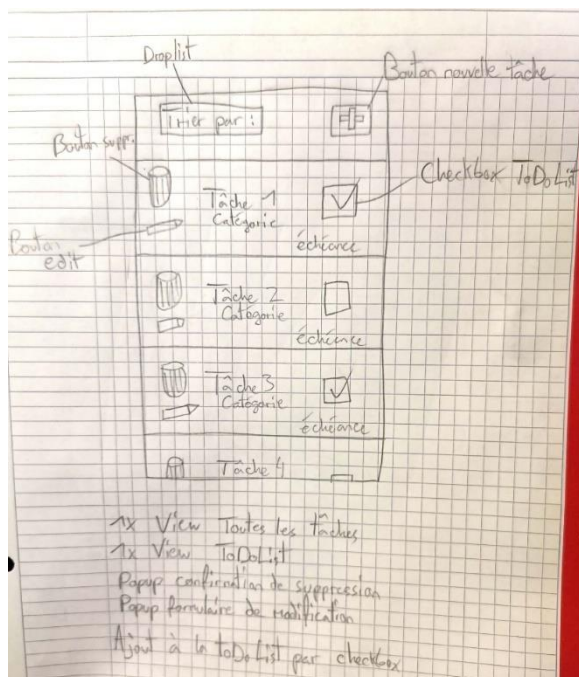 Droplist
Bouton nouvelle tâche
Trier par :
Bouton suppr.
Tâche 1
Catégorie
Checkbox ToDoList
échéance
Bouton
edit
Tâche 2
Catégorie
échéance
Tâche 3
Catégorie
échéance
Tâche 4
1x View Toutes les tâches
1x View ToDoList
Popup confirmation de suppression
Popup formulaire de modification
Ajout à la toDoList par checkbox